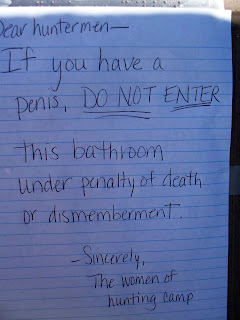 Dear huntermen—
If you have a
penis, DO NOT ENTER
this bathroom
under penalty of death
or dismemberment.
- Sincerely,
The women of
hunting camp